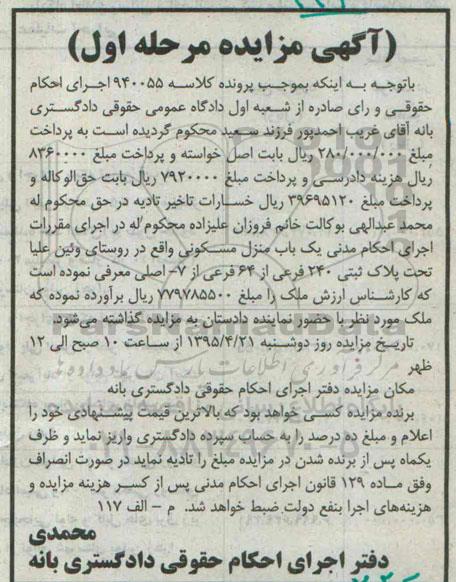 (آگهی مزایده مرحله اول)
باتوجه به اینکه بموجب پرونده کلاسه ۹۴۰۰۵۵ اجرای احکام
حقوقی و رای صادره از شعبه اول دادگاه عمومی حقوقی دادگستری
بانه آقای غریب احمدپور فرزند سعید محکوم گردیده است به پرداخت
مبلغ ۲۸۰/۰۰۰/۰۰۰ ریال بابت اصل خواسته و پرداخت مبلغ ۸۳۶۰۰۰۰
ریال هزینه دادرسی و پرداخت مبلغ ۷۹۲۰۰۰۰ ریال بابت حق‌الوکاله و
پرداخت مبلغ ۳۹۶۹۵۱۲۰ ریال خسارات تاخیر تادیه در حق محکوم له
محمد عبدالهی بوکالت خانم فروزان علیزاده محکوم‌له در اجرای مقررات
اجرای احکام مدنی یک باب منزل مسکونی واقع در روستای وئین علیا
تحت پلاک ثبتی ۲۴۰ فرعی از ۶۴ فرعی از ۷- اصلی معرفی نموده است
که کارشناس ارزش ملک را مبلغ ۷۷۹۷۸۵۵۰۰ ریال برآورده نموده که
ملک مورد نظر با حضور نماینده دادستان به مزایده گذاشته می‌شود.
تاریخ مزایده روز دوشنبه ۱۳۹۵/۴/۲۱ از ساعت ۱۰ صبح الی ۱۲
ظهر
مکان مزایده دفتر اجرای احکام حقوقی دادگستری بانه
برنده مزایده کسی خواهد بود که بالاترین قیمت پیشنهادی خود را
اعلام و مبلغ ده درصد را به حساب سپرده دادگستری واریز نماید و ظرف
یکماه پس از برنده شدن در مزایده مبلغ را تادیه نماید در صورت انصراف
وفق ماده ۱۲۹ قانون اجرای احکام مدنی پس از کسر هزینه مزایده و
هزینه‌های اجرا بنفع دولت ضبط خواهد شد. م - الف ۱۱۷
محمدی
دفتر اجرای احکام حقوقی دادگستری بانه